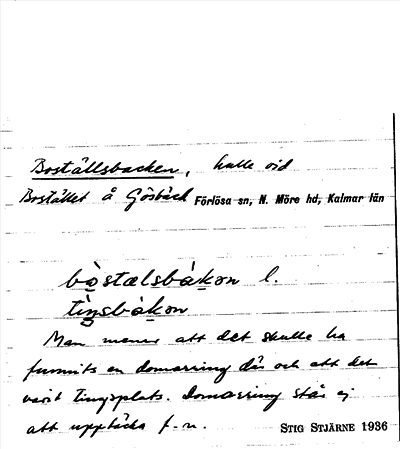 Boställsbacken, kulle vid
Bostället å Gösbäck Förlösa sn, N. Möre hd, Kalmar län
bòstælsbàkon l.
tìŋsbàkon
Man menar att det skulle ha
funnits en domarring där och att det
varit tingsplats. Domarring står ej
att upptäcka f. n. STIG STJÄRNE 1936